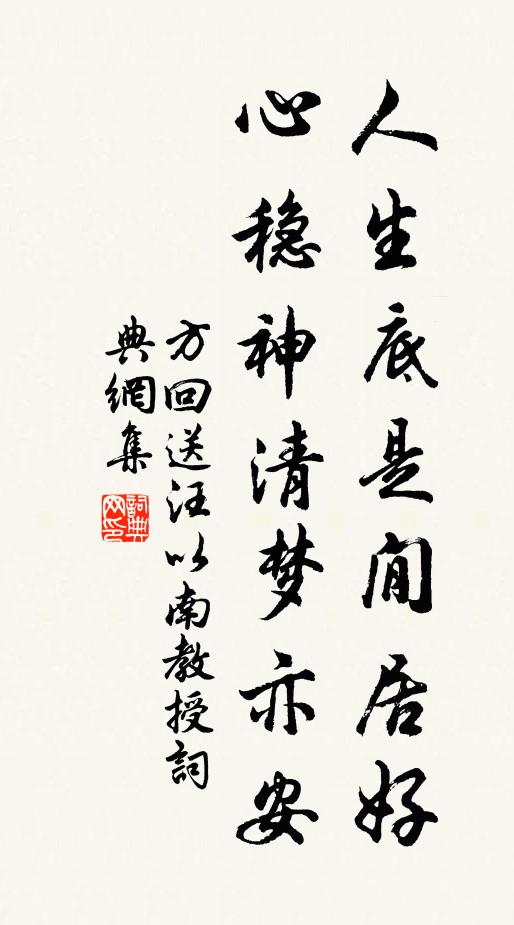 人生底是閒居好
心稳神清梦亦安
方回送汪以南教授詞
典網集
詞典网印